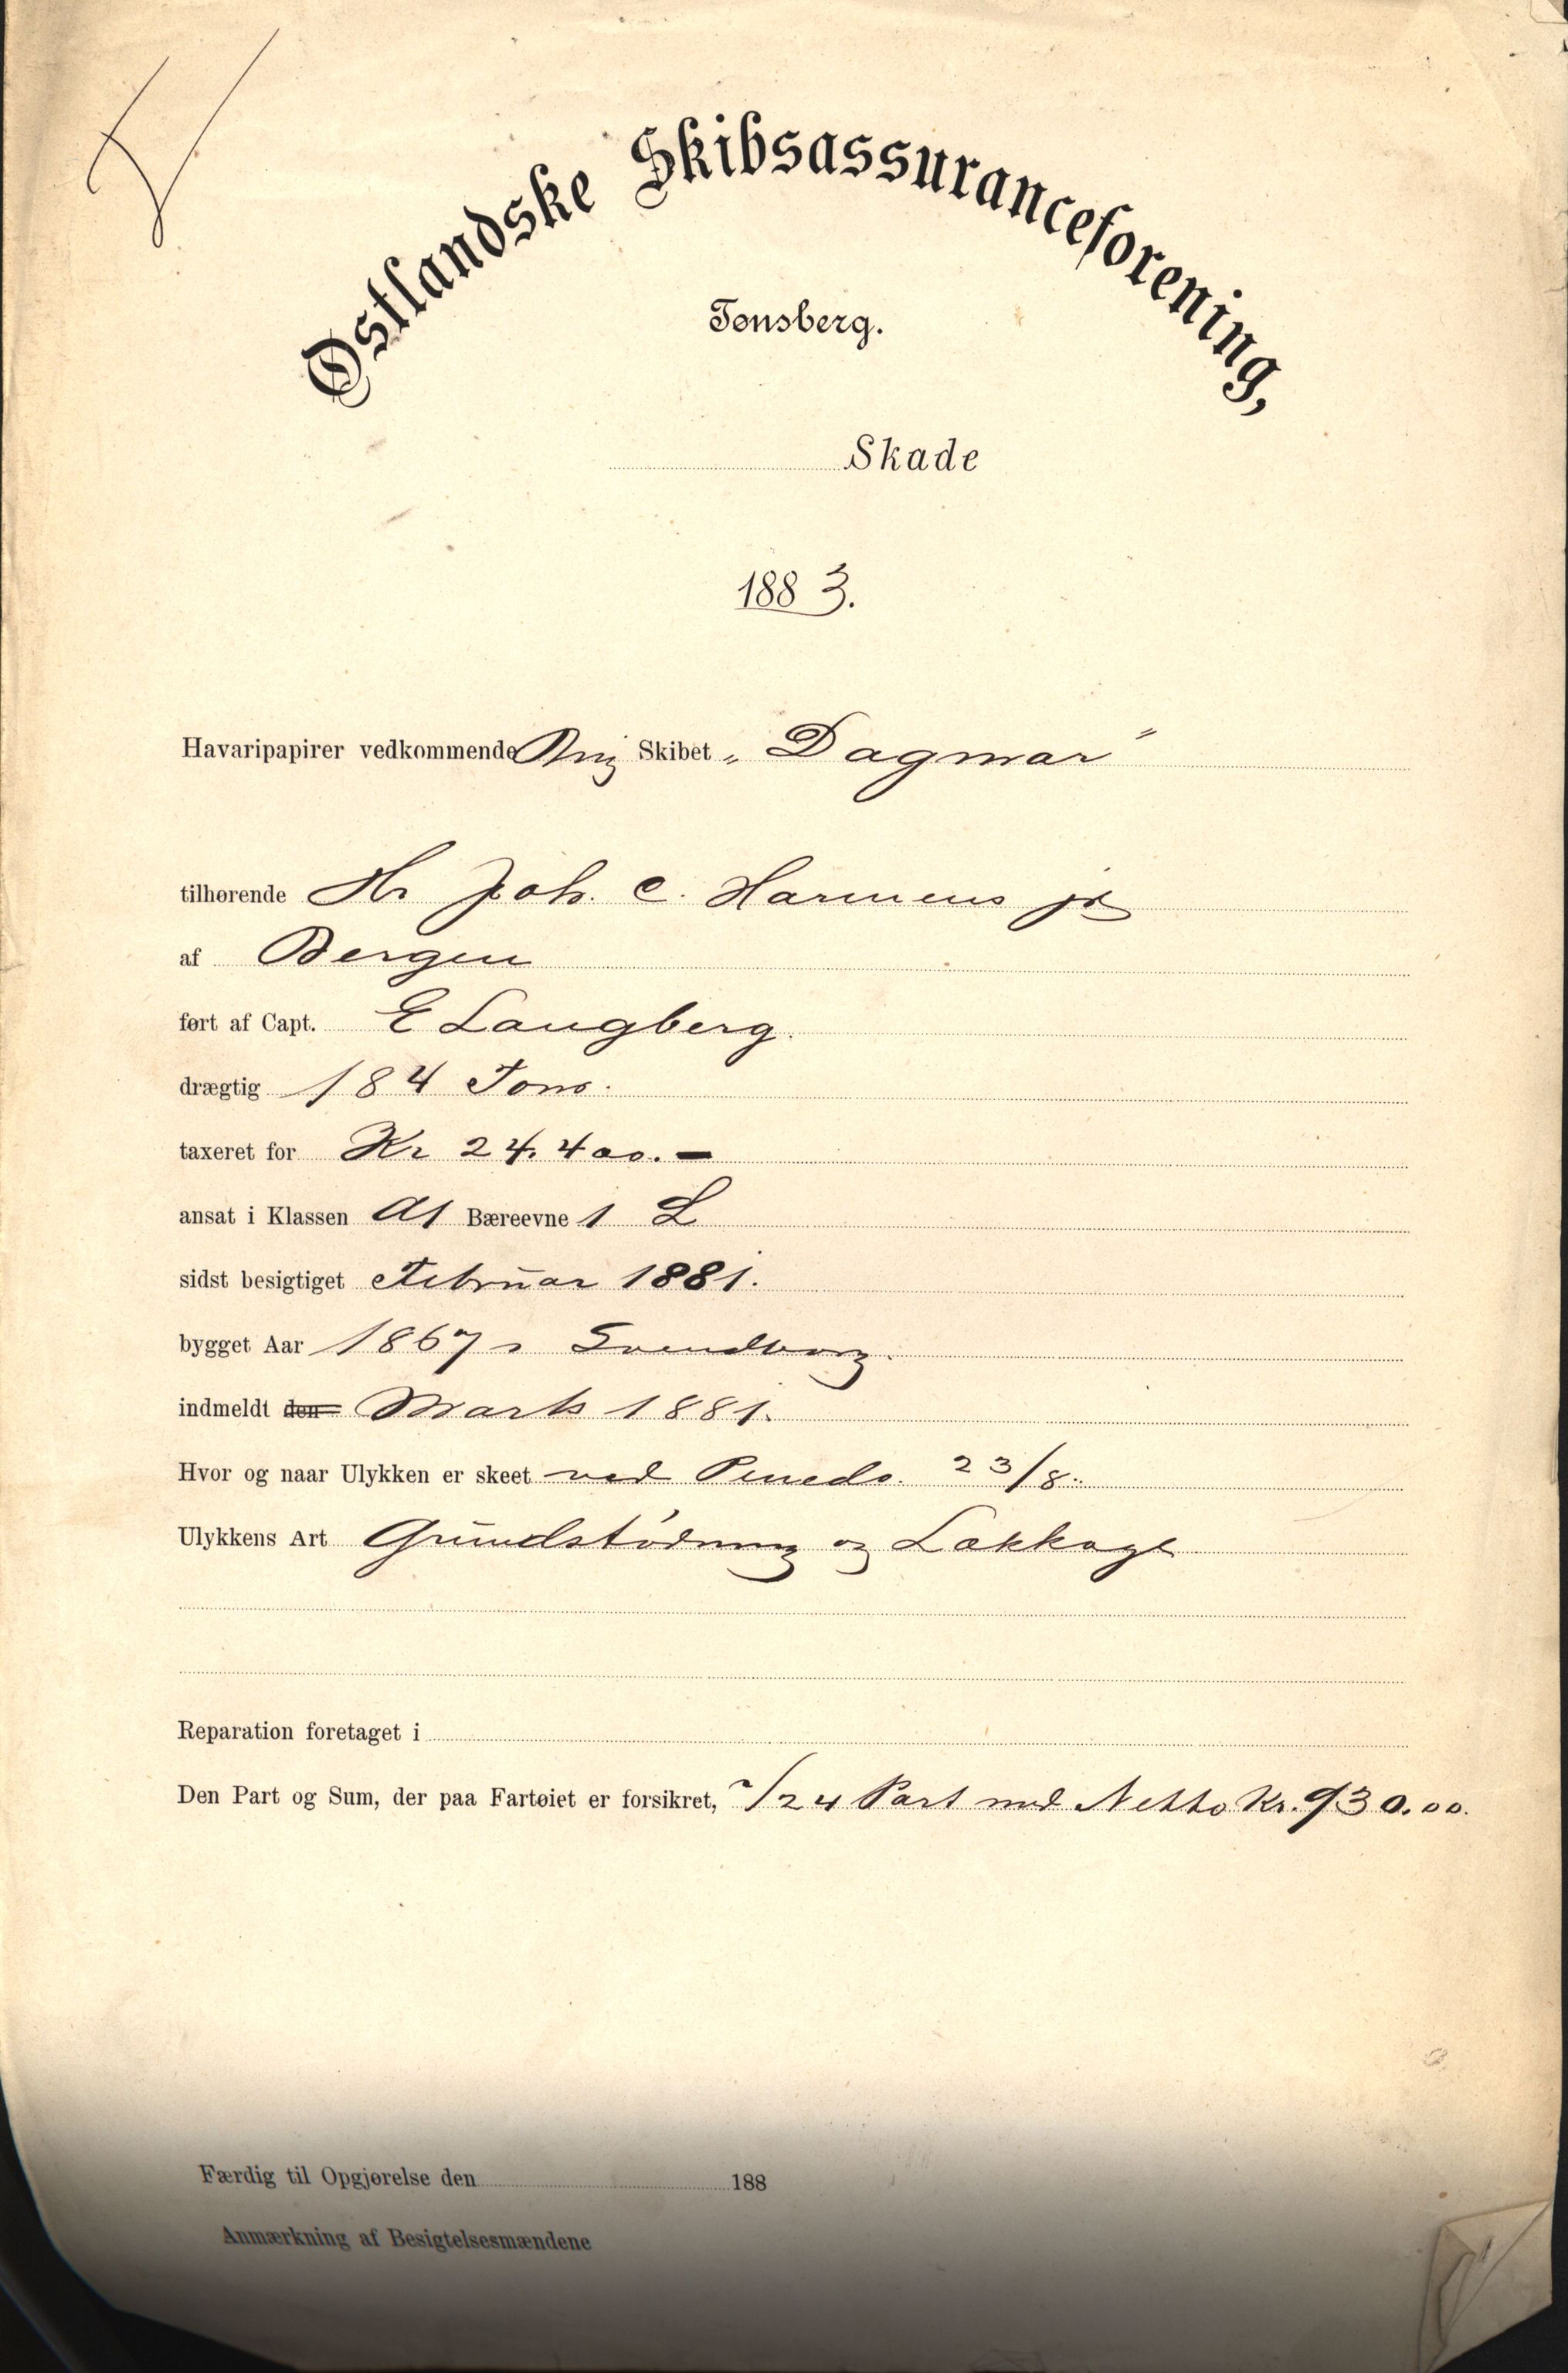 Østlandske Skibsassuranceforening,
Tønsberg.
Skade
1883.
Havaripapirer vedkommende Brig Skibet „Dagmar"
tilhørende Hr Joh. C. Harmens jr
af Bergen
ført af Capt. E Langberg.
drægtig 184 Tons.
taxeret for Kr 24.400.—
ansat i Klassen A1 Bæreevne 1 L
sidst besigtiget Februar 1881.
bygget Aar 1867 i Svendborg.
indmeldt den Marts 1881.
Hvor og naar Ulykken er skeet ved Penedo. 23/8.
Ulykkens Art Grundstødning og Lækkage
Reparation foretaget i
Den Part og Sum, der paa Fartøiet er forsikret, /24 Part med Netto Kr. 930.00.
Færdig til Opgjørelse den 188
Anmærkning af Besigtelsesmændene